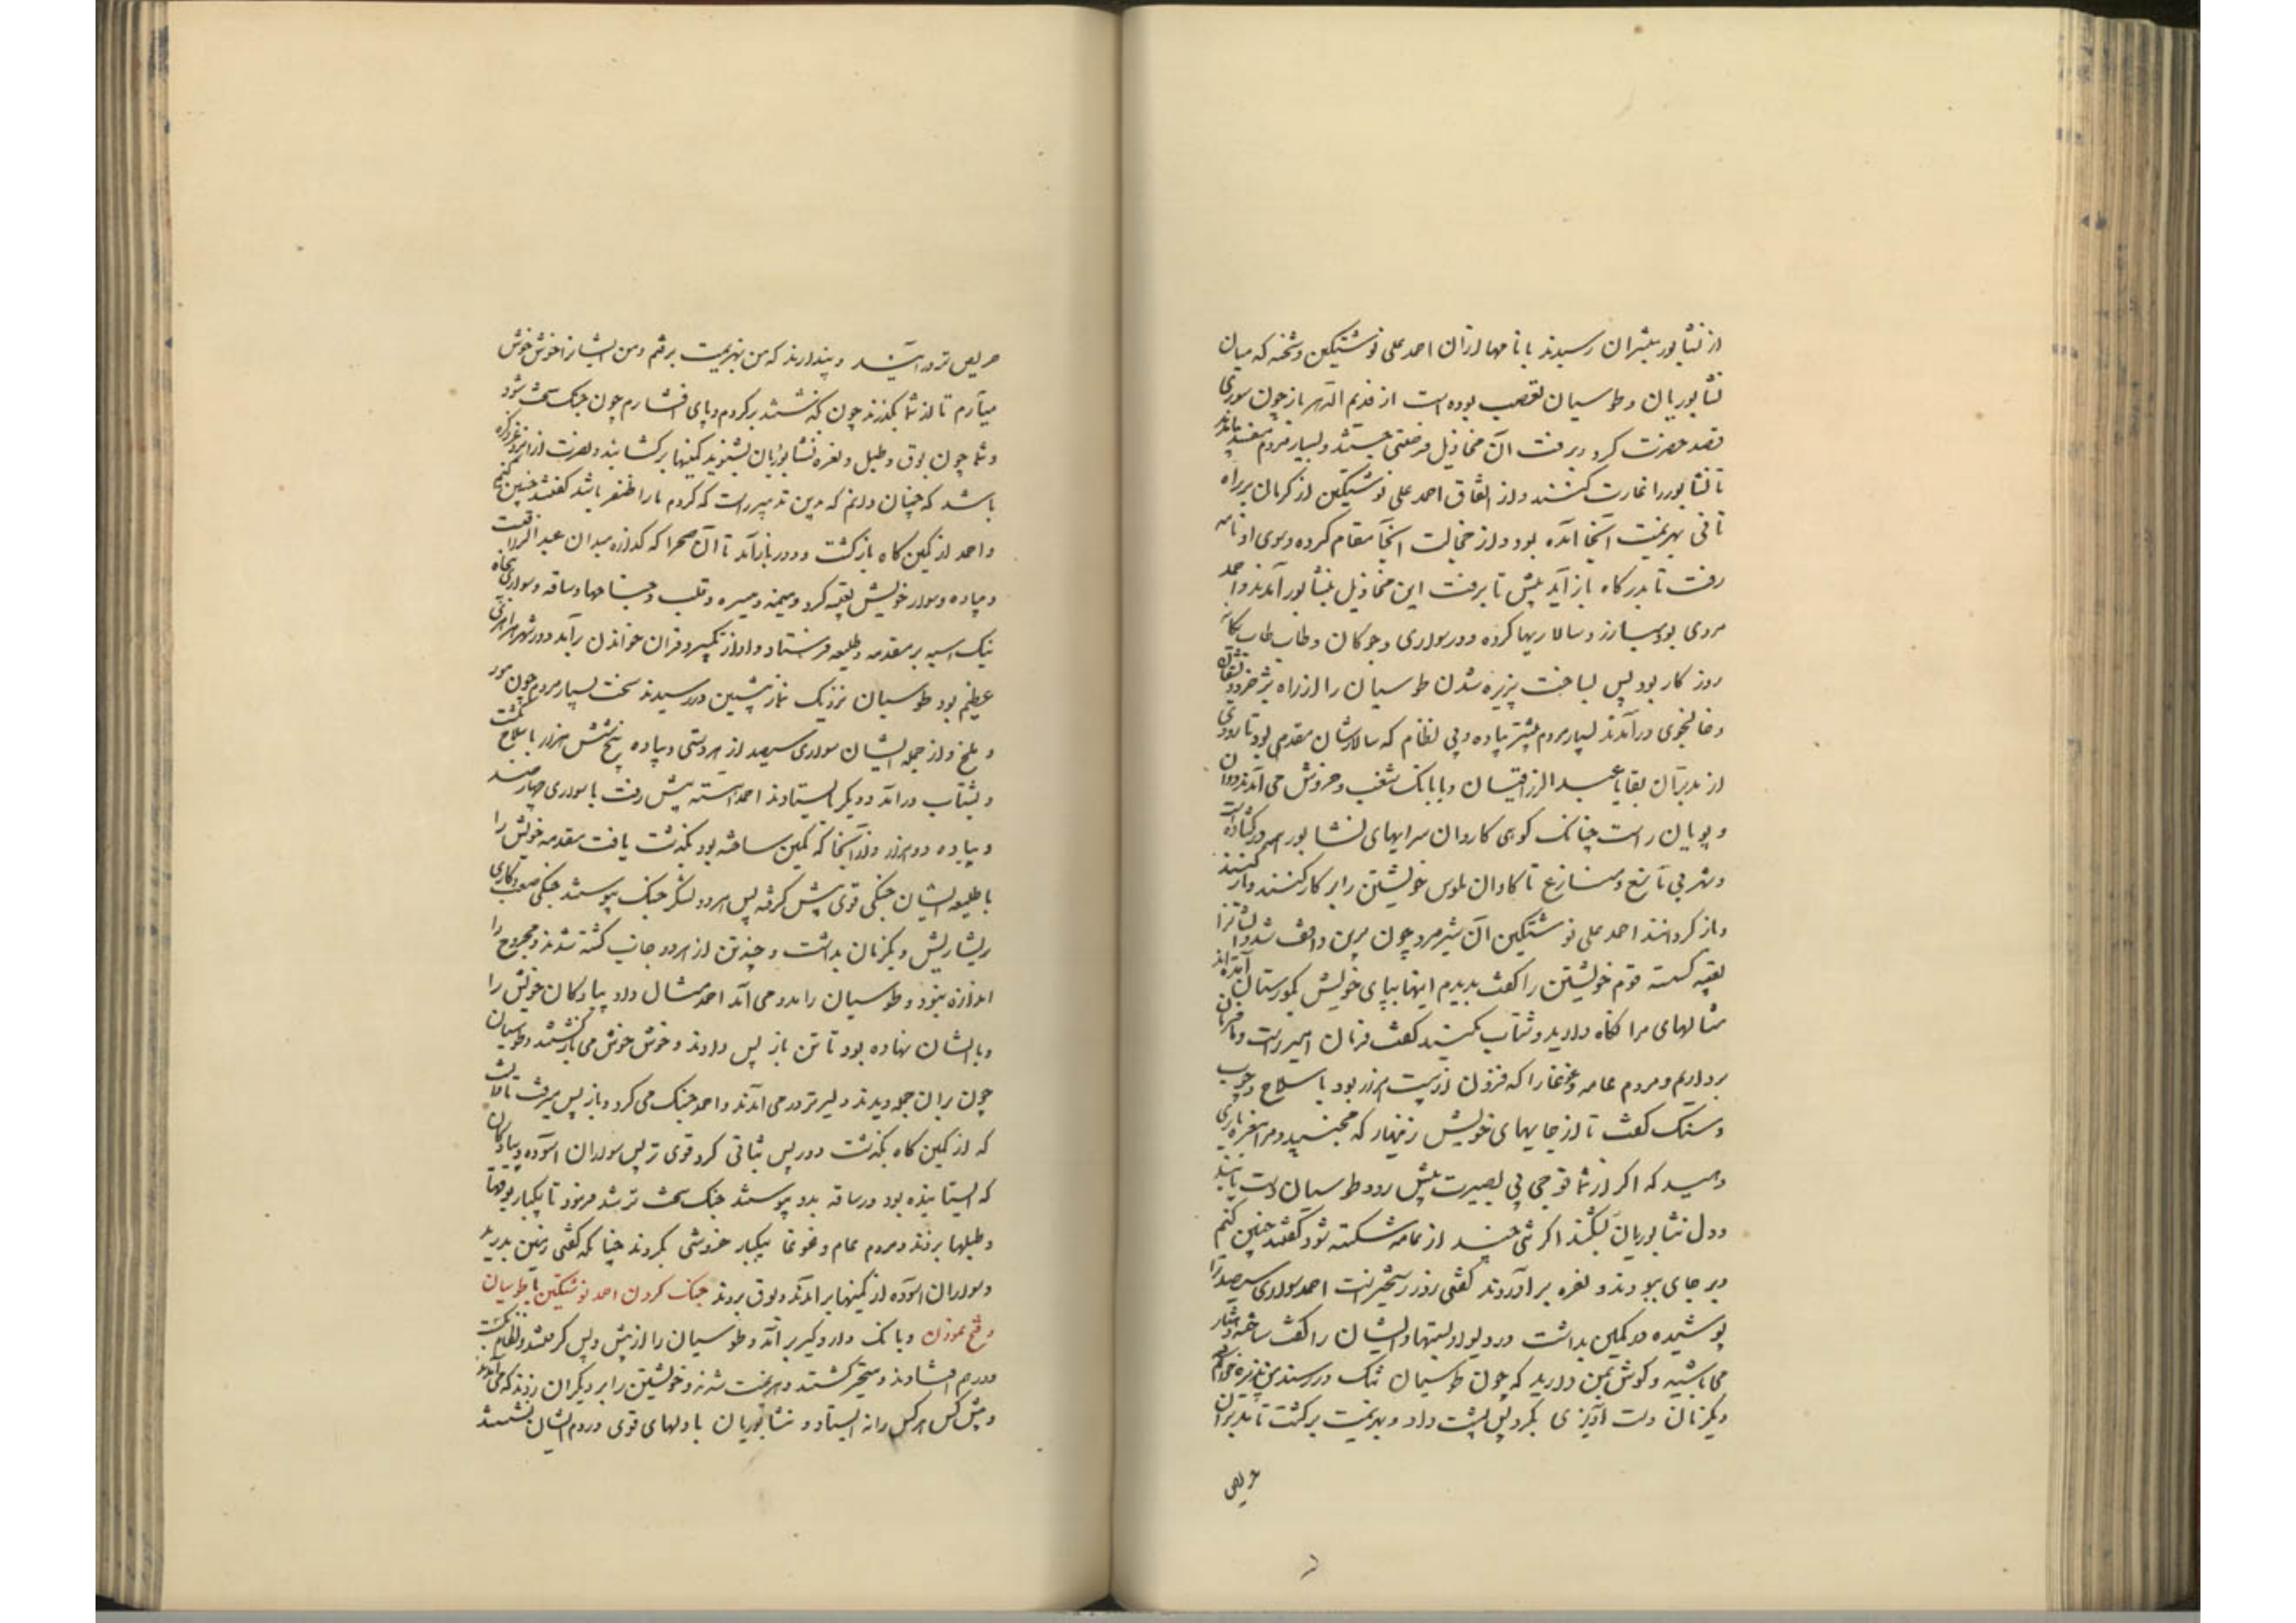 از نشابور مبشران رسیدند با نامها ازان احمد علی نوشتکین و شحنه که میان
نشابوریان و طوسیان تعصب بوده است از قدیم الدهر باز چون سوری
قصد حضرت کرد و برفت آن مخاذیل فرصتی جستند و بسیار مردم مفسد بیامدند
تا نشابور را غارت کنند و از اتفاق احمد علی نوشتکین از کرمان بر راه
قاین بهزیمت آنجا آمده بود و از خجالت آنجا مقام کرده و سوی او نامه
رفت تا بدرگاه باز آید پیش تا برفت این مخاذیل بنشابور آمدند و احمد
مردی بود مبارز و سالاریها کرده و در سواری و چوگان و طاب طاب یگانه
روزگار بود پس بساخت پذیره شدن طوسیان را از راه
و خالنجوی درآمدند بسیار مردم بیشتر پیاده و بی نظام که سالارشان مقدمی بود تارودی
از مدبران بقایا عبدالرزاقیان و با بانگ و شغب و خروش می آمدند دوان
و پویان راست چنانک گوئی کاروان سرایهای نشابور همه در گشاده است
و شهر بی مانع و منازع تا گاوان طوس خویشتن را بر کار کنند و بار کنند
و باز گردانند احمد علی نوشتکین آن شیر مرد چون برین واقف شد و ایشانرا
تعبیه گسسته قوم خویشتن را گفت بدیدم اینها بپای خویش بگورستان آمده اند
مثالهای مرا نگاه دارید و شتاب مکنید گفتند فرمان امیر راست و ما فرمان
برداریم و مردم عامه و غوغا را که فزون از بیست هزار بود با سلاح و چوب
و سنگ گفت تا از جایهای خویش زینهار که مجنبید و مرا بنعره یاری
دهید که اگر از شما فوجی بی بصیرت پیش رود طوسیان دست یابند
و دل نشابوریان بشکند اگر تنی چند از عامه شکسته شود گفتند چنین کنیم
و بر جای ببودند و نعره برآوردند گفتی روز رستخیزانست احمد سواری سیصد را
پوشیده در کمین بداشت در دیوار بستها و ایشان را گفت ساخته و هشیار
می باشید و گوش بمن دارید که چون طوسیان تنگ در رسند من پذیره خواهم شد
و یکزمان دست آویزی بکرد پس پشت داد و بهزیمت برگشت تا مدبران
حریص
حریص تر درآیند و پندارند که من بهزیمت برفتم و من ایشانرا خوش خوش
میآرم تا از شما بگذرند چون گذشتند برگردم و پای افشارم چون جنگ سخت شود
و شما چون بوق و طبل و نعره نشابوریان بشنوید کمینها برگشایند و نصرت از ایزد عز ذکره
باشد که چنان دانم که بدین تدبیر راست که کردم ما را ظفر باشد گفتند چنین کنیم
و احمد از کمین گاه بازگشت و دور باز آمد تا آن صحرا که گذاره میدان عبدالرزاقست
و پیاده و سوار خویش تعبیه کرد و میمنه و میسره و قلب و جناحها و ساقه و سواری پنجاه
نیک اسبه بر مقدمه و طلیعه فرستاد و آواز تکبیر و قرآن خواندن برآمد و در شهر هزاهزی
عظیم بود طوسیان نزدیک نماز پیشین در رسیدند سخت بسیار مردم چون مور
و ملخ و از جمله ایشان سواری سیصد از هر دستی و پیاده پنج شش هزار با سلاح بگشت
و بشتاب درآمد و دیگر بایستادند احمد آهسته پیش رفت با سواری چهار صد
و پیاده دو هزار و از آنجا که کمین ساخته بود بگذشت یافت مقدمه خویش را
با طلیعه ایشان جنگی قوی پیش گرفته پس هر دو لشکر جنگ پیوستند جنگی صعب و کاری
ریشاریش و یکزمان بداشت و چند تن از هر دو جانب کشته شدند و مجروح را
اندازه نبود و طوسیان را مدد می آمد احمد مثال داد پیادگان خویش را
و با ایشان نهاده بود تا تن باز پس دادند و خوش خوش می بازگشتند و طوسیان
چون بران جمله دیدند دلیرتر در می آمدند و احمد جنگ می کرد و باز پس میرفت تا دانست
که از کمین گاه بگذشت و در پس ثباتی کرد قوی تر پس سواران آسوده و پیادگان
که ایستانیده بود در ساقه بدو پیوستند جنگ سخت تر شد فرمود تا بیکبار بوقها
و طبلها بزدند و مردم عام و غوغا بیکبار خروشی بکردند چنانکه گفتی زمین بدرید
و سواران آسوده از کمینها برآمدند و بوق بزدند جنگ کردن احمد نوشتکین با طوسیان
و فتح نمودن و بانک دار و گیر برآمد و طوسیان را از پیش و پس گرفتند و نظام بگسست
و درهم افتادند و متحیر گشتند و هزیمت شدند و خویشتن را بر دیگران زدند که می آمدند
و بیش کس مر کس را نه ایستاد و نشابوریان با دلهای قوی در دم ایشان نشستند